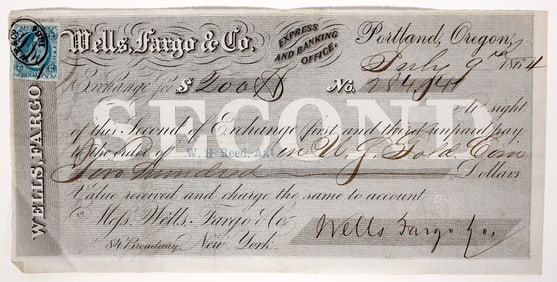 Wells, Fargo & Co.
EXPRESS AND BANKING OFFICE,
Portland, Oregon,
July 9th 1864
Exchange for $ 200
No.
SECOND
sight
of this Second of Exchange first and third unpaid pay
to the order of W. H. Reed, in U.S. Gold Coin
Two hundred Dollars
Value received and charge the same to account
To Messrs. Wells, Fargo & Co.
84 Broadway, New York.
Wells Fargo & Co.
WELLS, FARGO